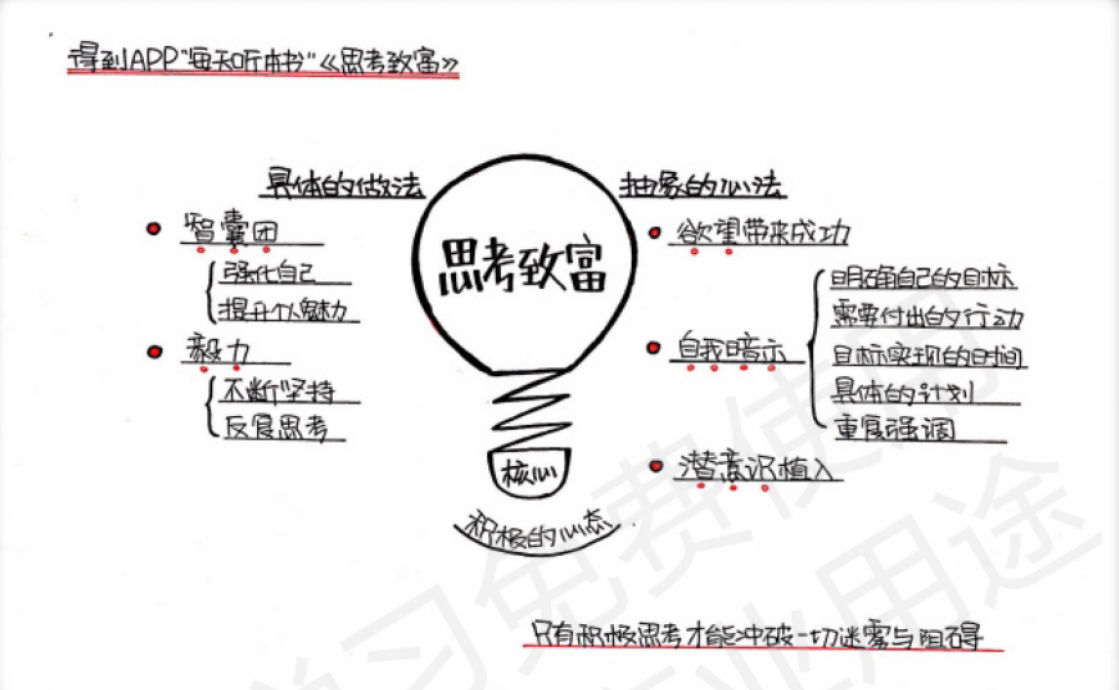 得到APP"每天听本书"《思考致富》
具体的做法
智囊团
强化自己
提升个人魅力
毅力
不断坚持
反复思考
思考致富
核心
积极的心态
抽象的心法
欲望带来成功
自我暗示
明确自己的目标
需要付出的行动
目标实现的时间
具体的计划
重复强调
潜意识植入
只有积极思考才能冲破一切迷雾与阻碍
学习免费使用
业用途